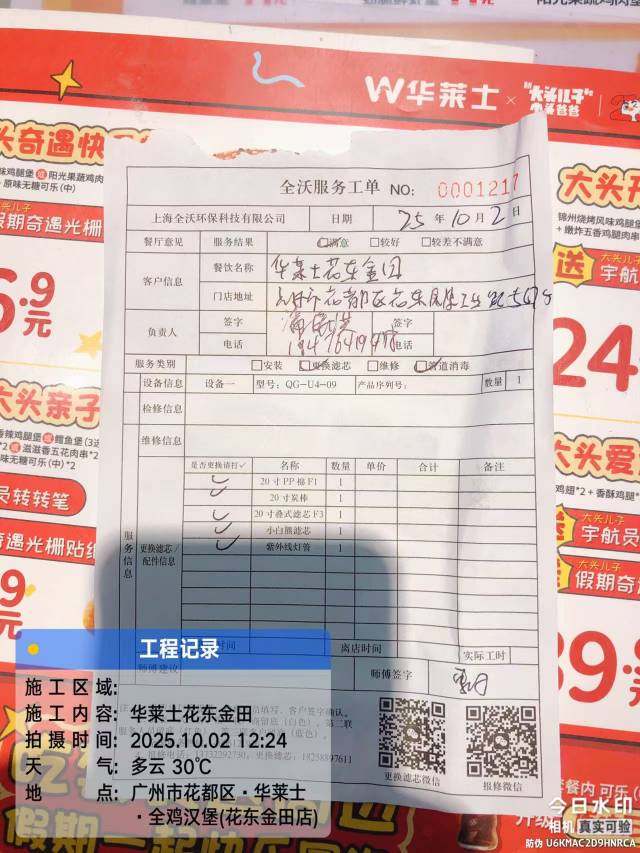 W华莱士 × "大头儿子"
小头爸爸
大头奇遇快
味鸡腿堡 或 阳光果蔬鸡肉
+ 原味无糖可乐(中)
假期奇遇光栅
6.9
元
大头亲子
香辣鸡腿堡 或 鳕鱼堡(3选
*2 或 滋滋香五花肉串*2
味无糖可乐(中)*2
员转转笔
奇遇光栅贴纸
9
元
大头开
锦州烧烤风味鸡腿
+ 嫩炸五香鸡腿肉串
送
大头儿子
宇航
假期奇
24
大头爱
鸡翅*2 + 香酥鸡
大头儿子
宇航员
假期奇
39.9
全沃服务工单 NO: 0001217
上海全沃环保科技有限公司 日期 25 年 10 月 2 日
餐厅意见 服务结果 满意 较好 较差不满意
客户信息 餐饮名称 华莱士花东金田
门店地址
负责人 签字 签字
电话 电话
服务类别 安装 更换滤芯 维修 管道消毒
设备信息 设备一 型号: QG-U4-09 产品序列号: 数量 1
检修信息
维修信息
服务信息
更换滤芯/
配件信息
是否更换请打✓ 名称 数量 单价 合计 备注
✓ 20寸PP棉F1 1
20寸炭棒 1
✓ 20寸叠式滤芯F3 1
✓ 小白熊滤芯 1
✓ 紫外线灯管 1
时间 离店时间 实际工时
师傅建议 师傅签字
填写、客户签字确认。
商留底(白色)、第二联
(蓝色)。
4、报修电话: 13732292730, 更换滤芯: 18258897611
更换滤芯微信
报修微信
工程记录
施工区域:
施工内容: 华莱士花东金田
拍摄时间: 2025.10.02 12:24
天 气: 多云 30℃
地 点: 广州市花都区·华莱士
·全鸡汉堡(花东金田店)
假期一起快乐
套餐内可乐(
今日水印
相机 真实可验
防伪 U6KMAC2D9HNRCA